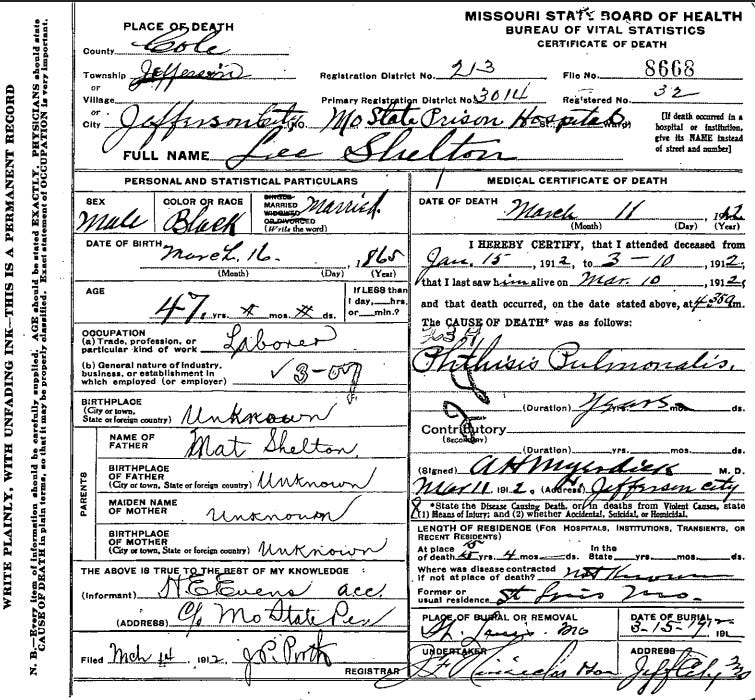 MISSOURI STATE BOARD OF HEALTH
BUREAU OF VITAL STATISTICS
CERTIFICATE OF DEATH
PLACE OF DEATH
County Cole
Township Jefferson
or
Village
or
City Jefferson City NO. Mo State Prison Hospital St. Ward)
Registration District No. 213 File No. 8668
Primary Registration District No. 3014 Registered No. 32
[If death occurred in a
hospital or institution,
give its NAME instead
of street and number]
FULL NAME Lee Shelton
PERSONAL AND STATISTICAL PARTICULARS
SEX
Male
COLOR OR RACE
Black
SINGLE
MARRIED
WIDOWED
OR DIVORCED
(Write the word)
Married
DATE OF BIRTH
March 16. 1865
(Month) (Day) (Year)
AGE
47 yrs. mos. ds.
If LESS than
1 day, hrs.
or min.?
OCCUPATION
(a) Trade, profession, or
particular kind of work Laborer
(b) General nature of industry,
business, or establishment in
which employed (or employer)
BIRTHPLACE
(City or town,
State or foreign country) Unknown
PARENTS
NAME OF
FATHER Mat Shelton
BIRTHPLACE
OF FATHER
(City or town, State or foreign country) Unknown
MAIDEN NAME
OF MOTHER Unknown
BIRTHPLACE
OF MOTHER
(City or town, State or foreign country) Unknown
THE ABOVE IS TRUE TO THE BEST OF MY KNOWLEDGE
(Informant) H E Evens acc.
(ADDRESS) C/o Mo State Pen
Filed Mch 14 1912 J.P. Porth
REGISTRAR
MEDICAL CERTIFICATE OF DEATH
DATE OF DEATH March 11 1912
(Month) (Day) (Year)
I HEREBY CERTIFY, that I attended deceased from
Jan. 15, 1912, to 3-10, 1912,
that I last saw him alive on Mar. 10 1912,
and that death occurred, on the date stated above, at m.
The CAUSE OF DEATH* was as follows:
Phthisis Pulmonalis.
(Duration) Years mos. ds.
Contributory
(SECONDARY)
(Duration) yrs. mos. ds.
(Signed) M. D.
Mar 11 1912. (Address) Jefferson City
*State the Disease Causing Death, or, in deaths from Violent Causes, state
(1) Means of Injury; and (2) whether Accidental, Suicidal, or Homicidal.
LENGTH OF RESIDENCE (FOR HOSPITALS, INSTITUTIONS, TRANSIENTS, OR
RECENT RESIDENTS)
At place
of death yrs. 4 mos. ds.
In the
State yrs. mos. ds.
Where was disease contracted
if not at place of death? Not Known
Former or
usual residence St Louis Mo.
PLACE OF BURIAL OR REMOVAL
St. Louis. Mo
DATE OF BURIAL
3-15-1912
UNDERTAKER
ADDRESS
Jeff City Mo
WRITE PLAINLY, WITH UNFADING INK—THIS IS A PERMANENT RECORD
N. B.—Every item of information should be carefully supplied. AGE should be stated EXACTLY. PHYSICIANS should state
CAUSE OF DEATH in plain terms, so that it may be properly classified. Exact statement of OCCUPATION is very important.